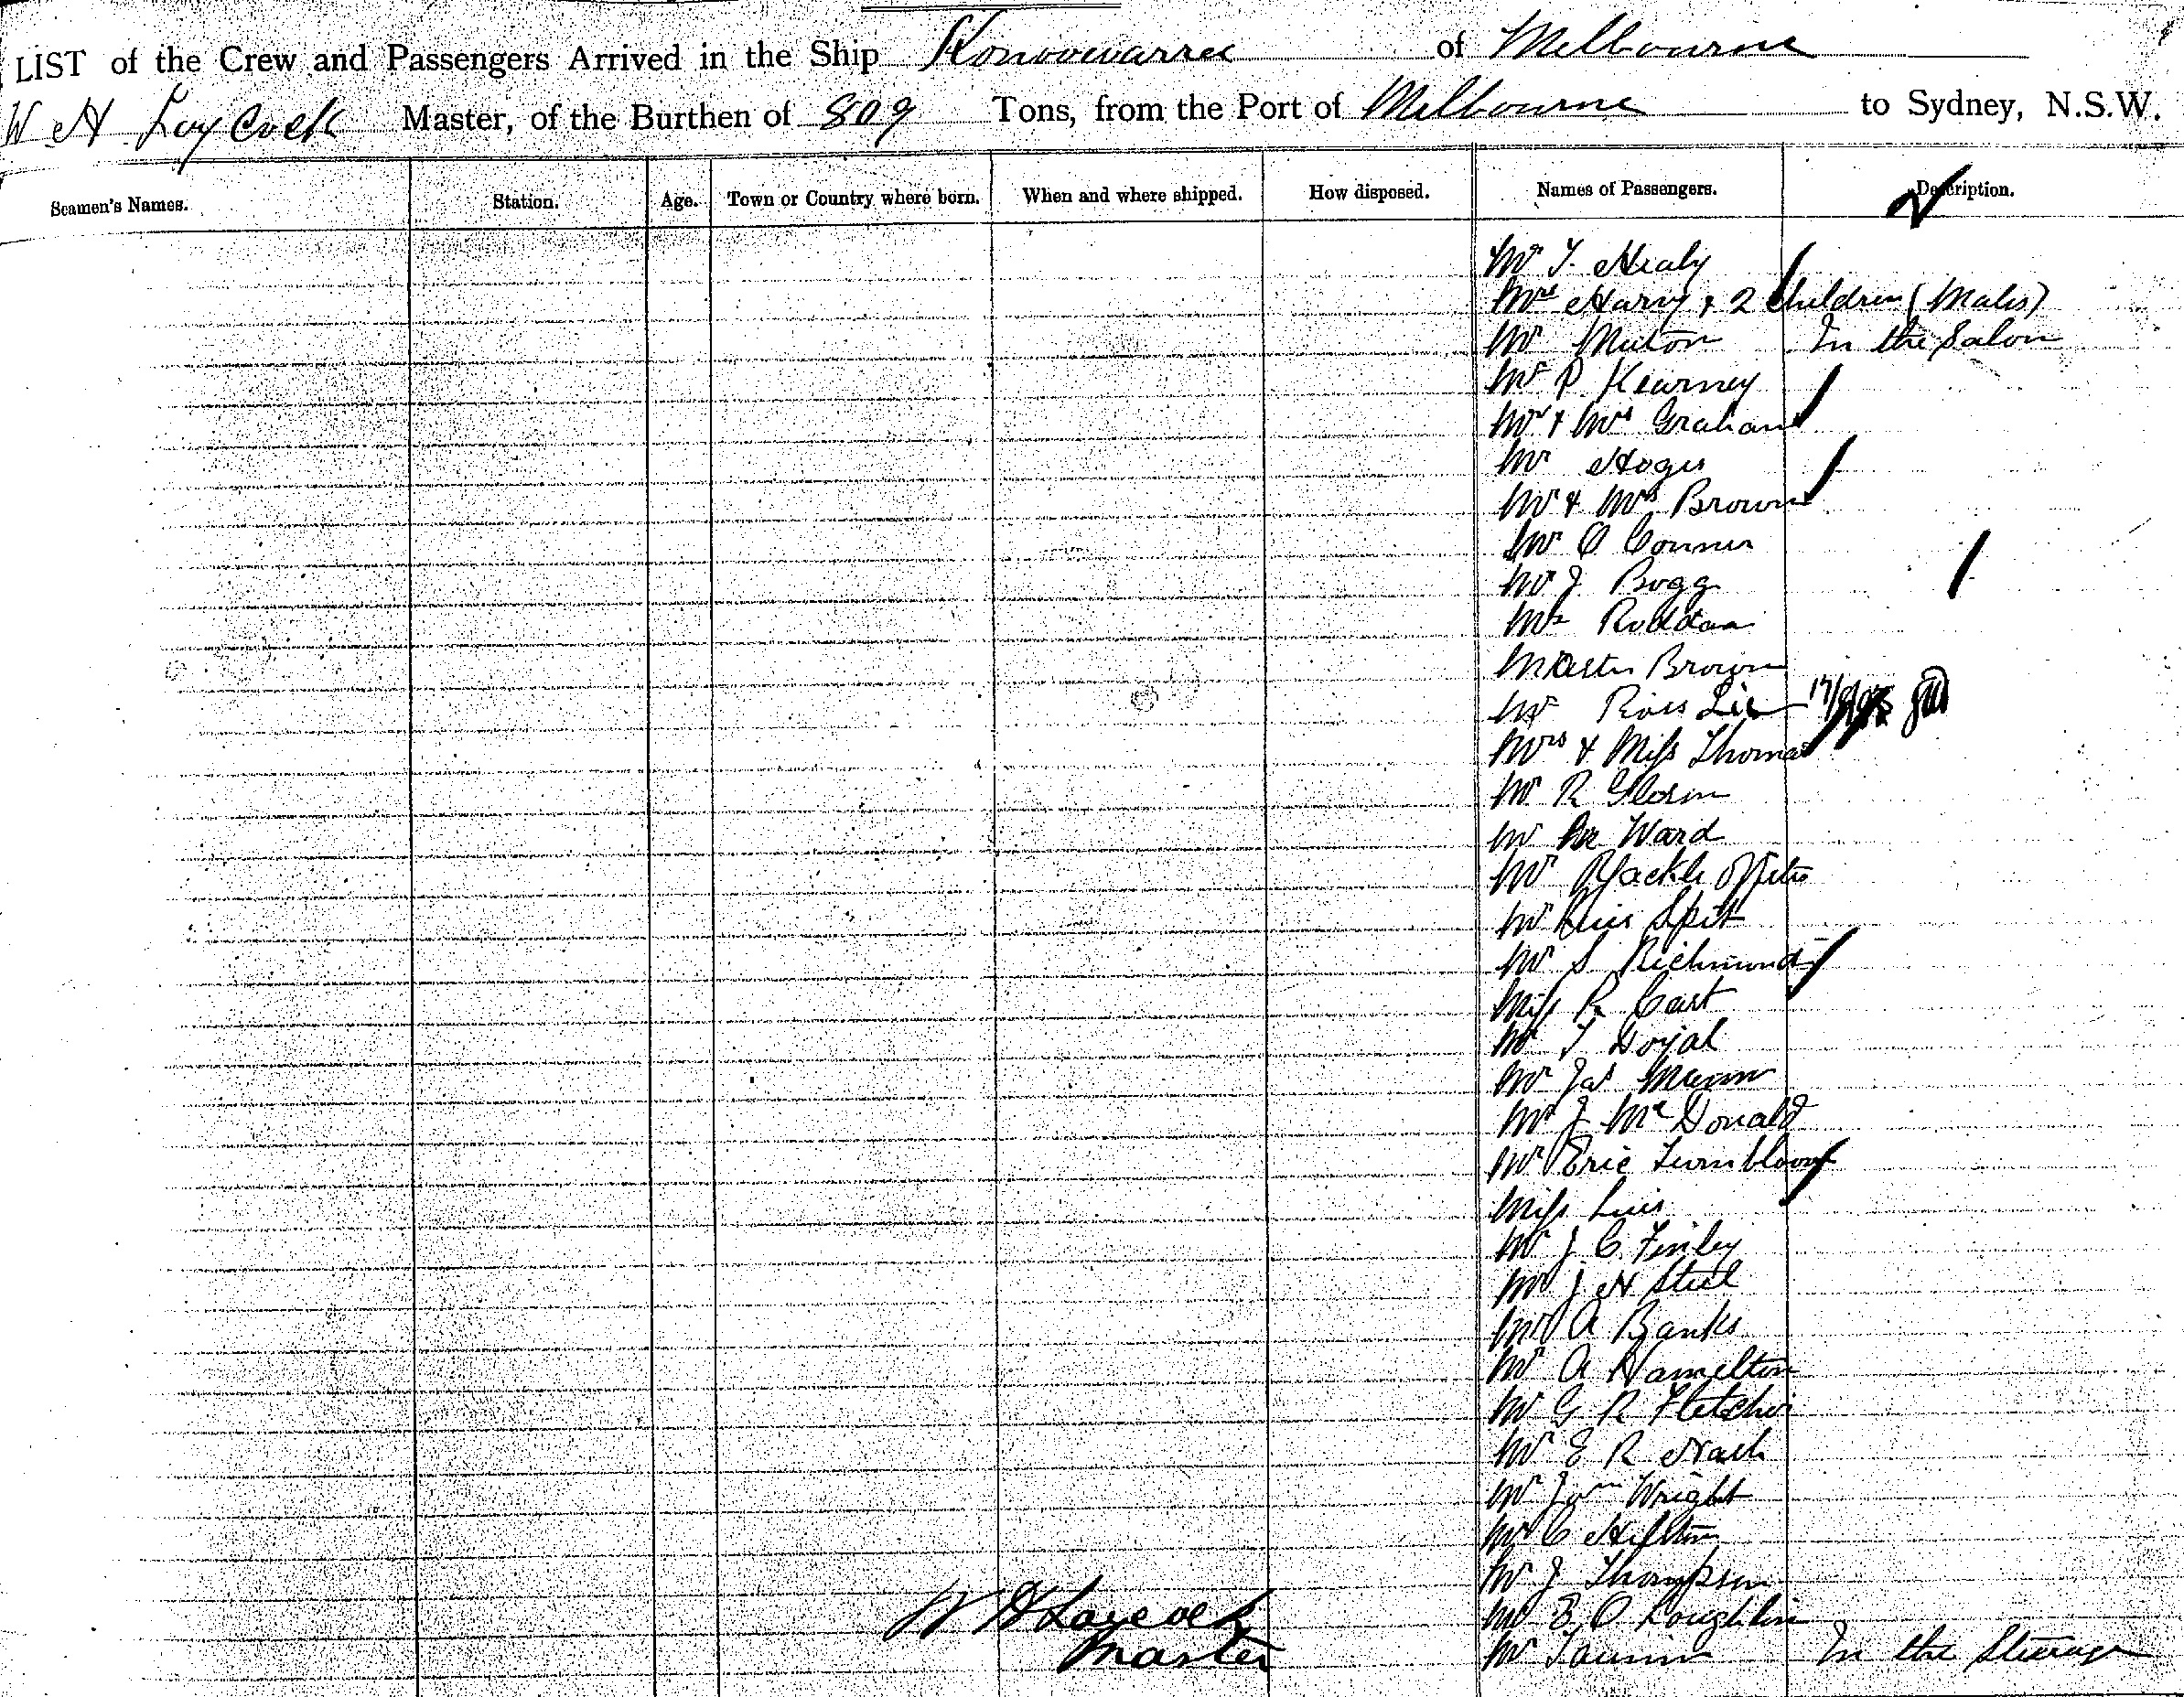 LIST of the Crew and Passengers Arrived in the Ship Konoowarra of Melbourne
W H Laycock Master, of the Burthen of 809 Tons, from the Port of Melbourne to Sydney, N.S.W.
Seamen's Names. Station. Age. Town or Country where born. When and where shipped. How disposed. Names of Passengers. Description.
Mr T. Healy
Mrs Harvy & 2 Children (Males)
Mr In the Salon
Mr P Kearney
Mr & Mrs Graham
Mr
Mr & Mrs Brown
Mr O Conner
Mr J Bogg
Brown
Mr
Mrs & Miss Thomas
Mr R
Mr Ward
Mr
Mr
Mr S Richmond
Miss R Cart
Mr T Doyal
Mr Jas
Mr J McDonald
Mr Eric
Miss
Mr J C Finley
Mr J H Steel
Mr A Banks
Mr A Hamelton
Mr G R Fletcher
Mr E R Nash
Mr Wright
Mr C Hilton
Mr J Thompson
Mr O Loughlin
Mr In the Steerage
W H Laycock
Master